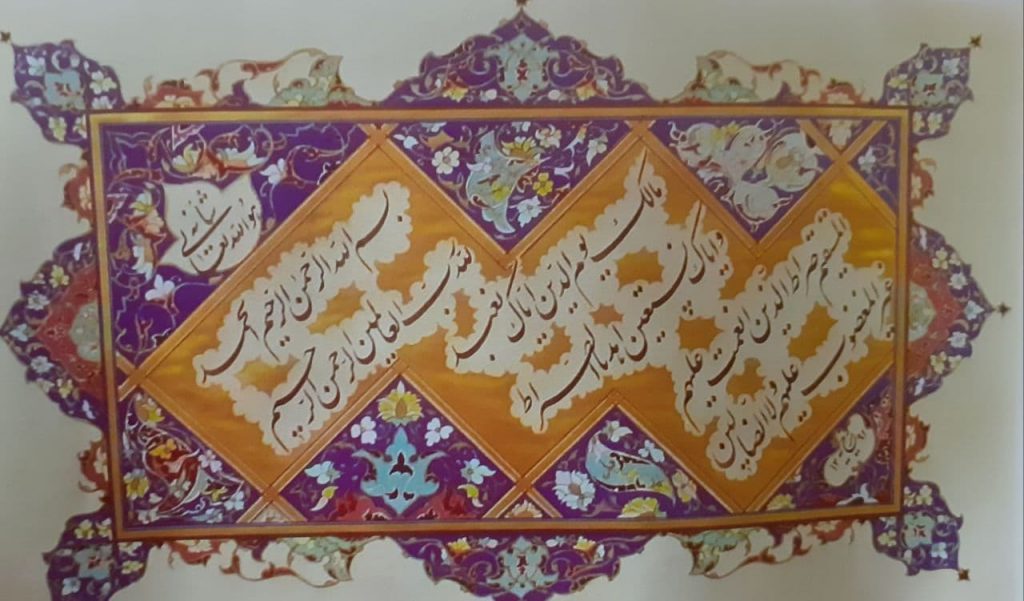 هو الله تعالی
شانه
بسم الله الرحمن الرحیم الحمد
لله رب العالمین الرحمن الرحیم
مالک یوم الدین ایاک نعبد
وایاک نستعین اهدنا الصراط
المستقیم صراط الذین انعمت علیهم
غیر المغضوب علیهم ولا الضالین